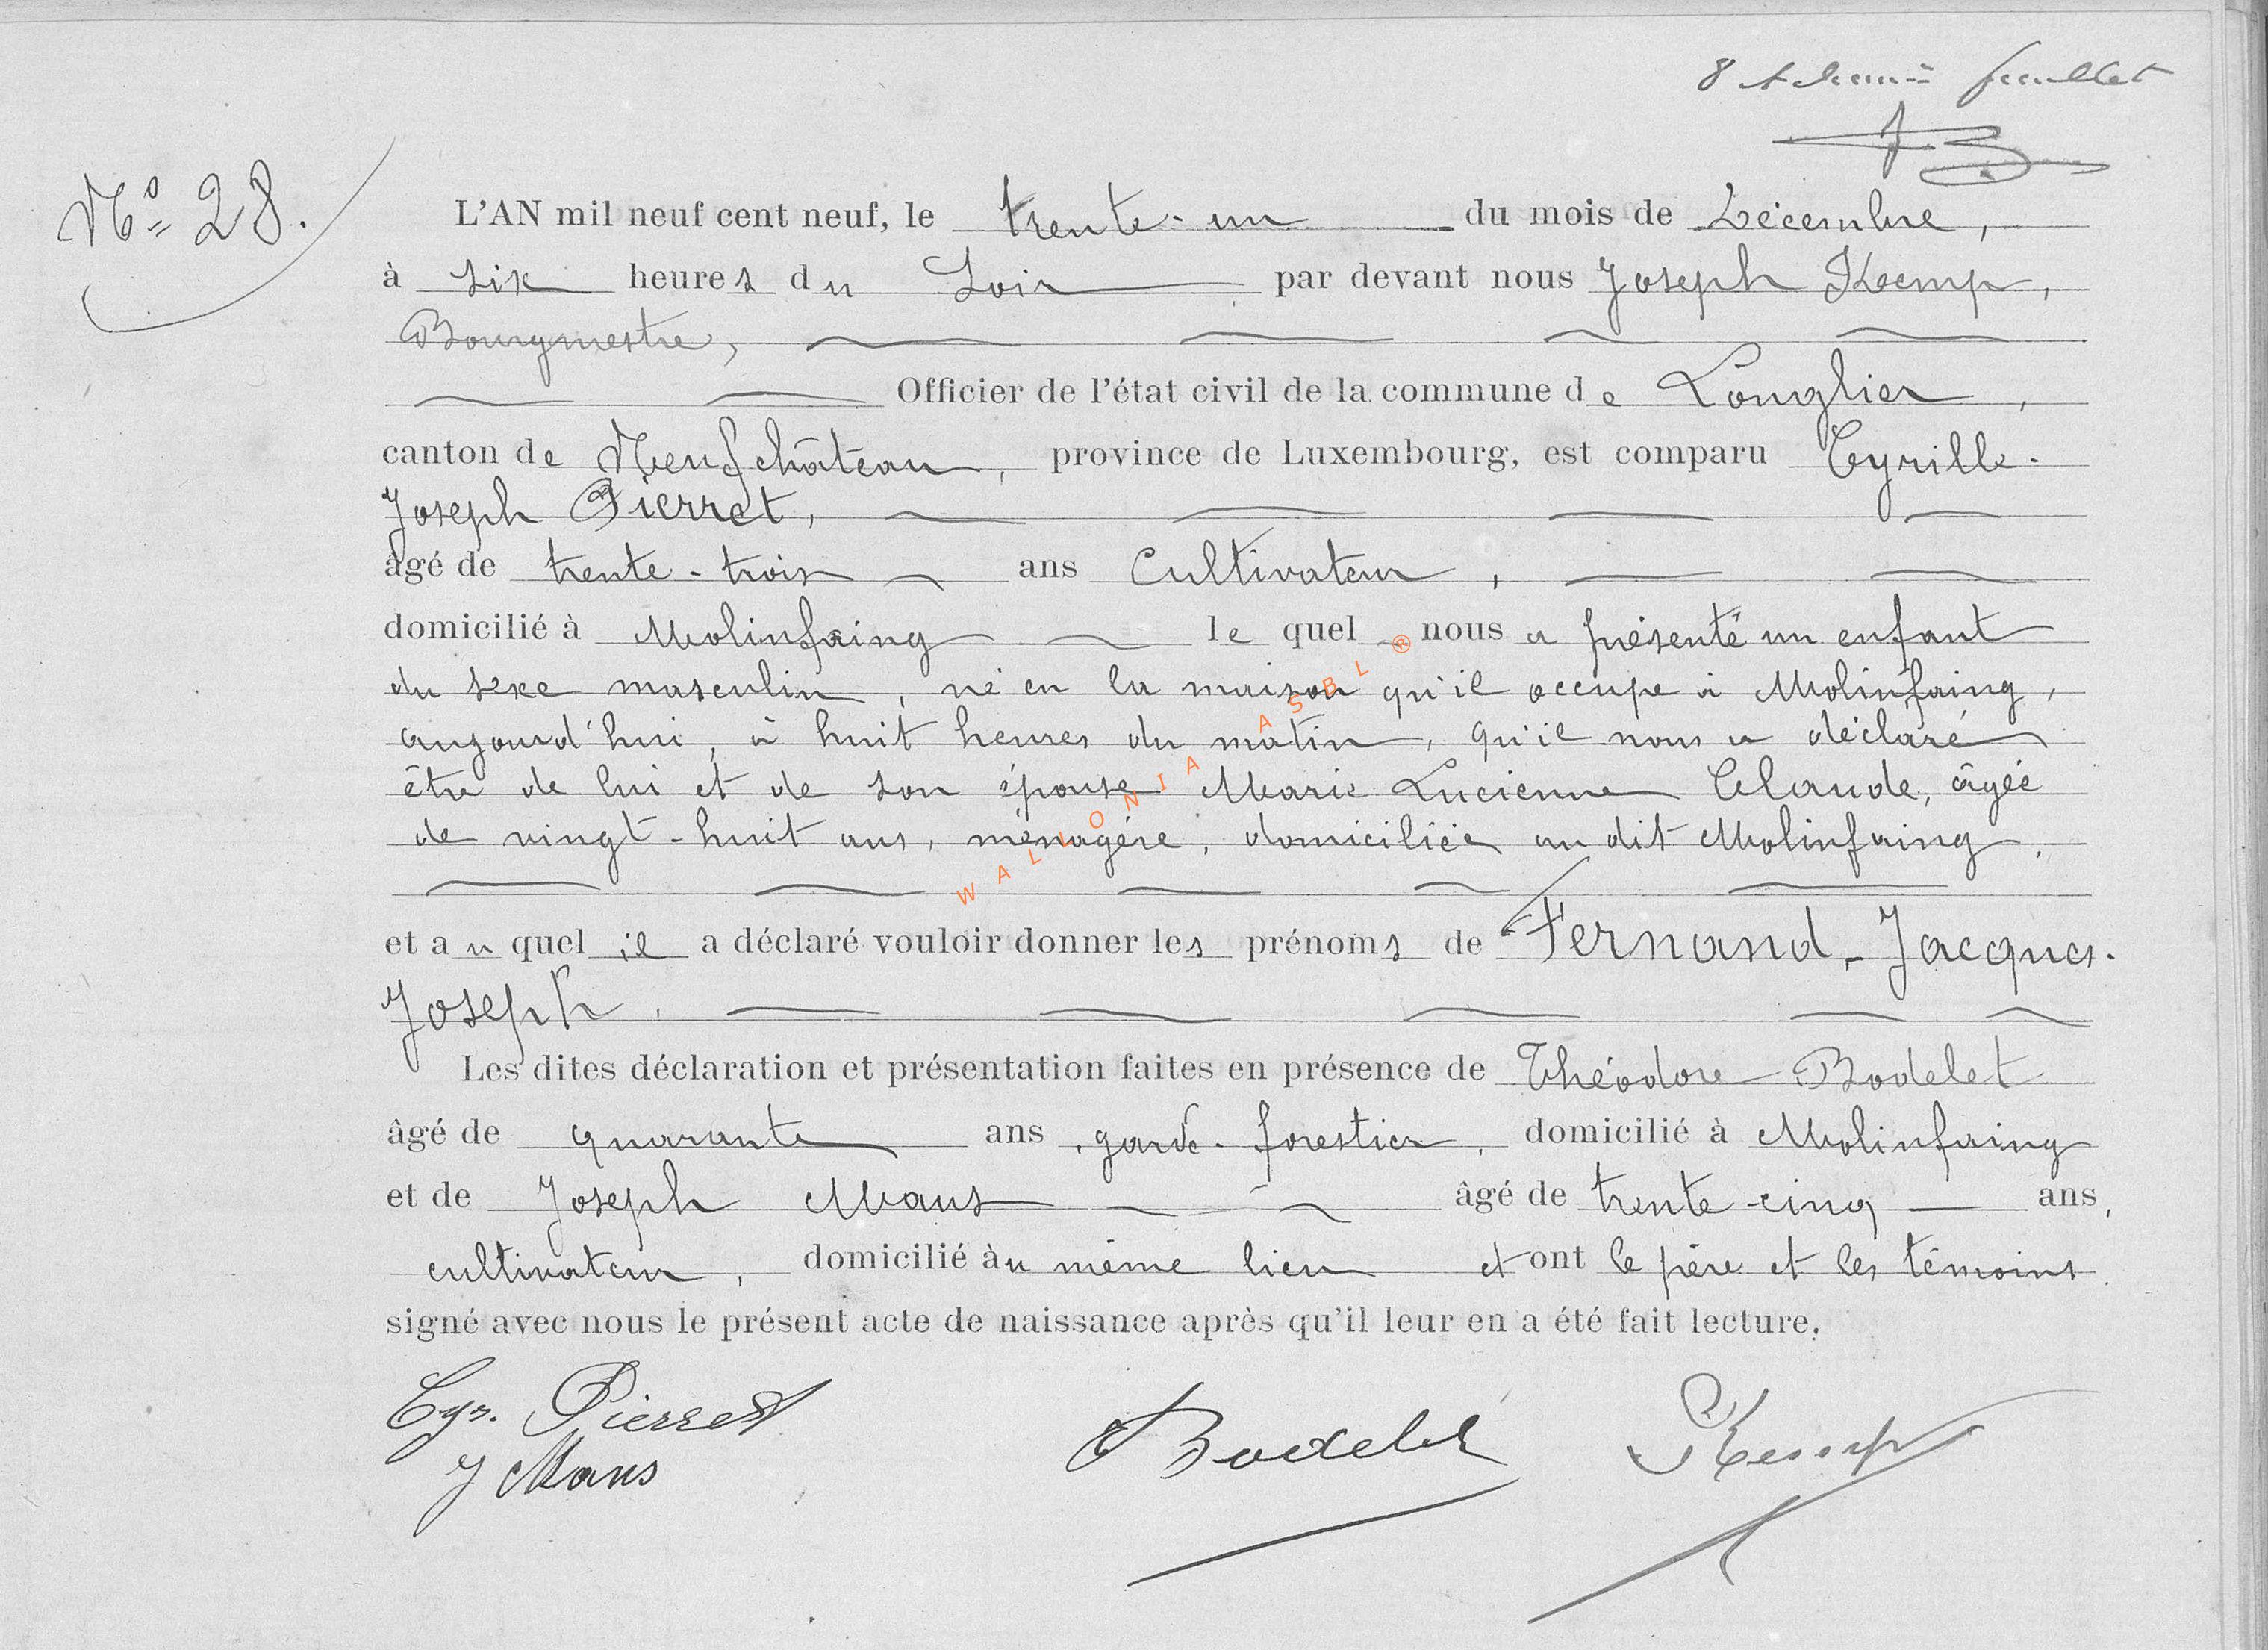 8 feuillet
No 28.
L'AN mil neuf cent neuf, le trente-un du mois de Décembre,
à six heures du Soir par devant nous Joseph Kemp,
Bourgmestre,
Officier de l'état civil de la commune de Longlier,
canton de Neufchâteau, province de Luxembourg, est comparu Cyrille-
Joseph Pierret,
âgé de trente-trois ans Cultivateur,
domicilié à Molinfaing lequel nous a présenté un enfant
du sexe masculin, né en la maison qu'il occupe à Molinfaing,
aujourd'hui, à huit heures du matin, qu'il nous a déclaré
être de lui et de son épouse Marie Lucienne Claude, âgée
de vingt-huit ans, ménagère, domiciliée au dit Molinfaing.
WALLONIA ASBL ®
et auquel il a déclaré vouloir donner les prénoms de Fernand-Jacques-
Joseph.
Les dites déclaration et présentation faites en présence de Théodore Bodelet
âgé de quarante ans, garde-forestier, domicilié à Molinfaing
et de Joseph Maus âgé de trente-cinq ans,
cultivateur, domicilié au même lieu et ont le père et les témoins
signé avec nous le présent acte de naissance après qu'il leur en a été fait lecture.
Cyr. Pierret
J Maus
Bodelet
Kemp